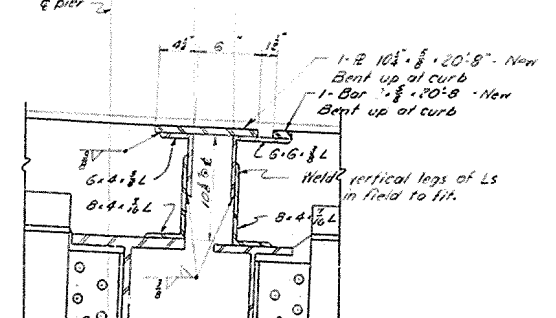 ℄ pier
4½" 6" 1½"
1-℄ 10¼" × ⅝ × 20'-8" - New
Bent up at curb
1-Bar × ⅝ × 20'-8 - New
Bent up at curb
6×4×⅜ L
6×6×⅜ L
Weld vertical legs of Ls
in field to fit.
8×4×7/16 L
8×4×7/16 L